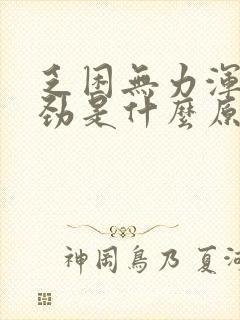 乏困無力渾
勁是什麼原
神岡鳥乃 夏河